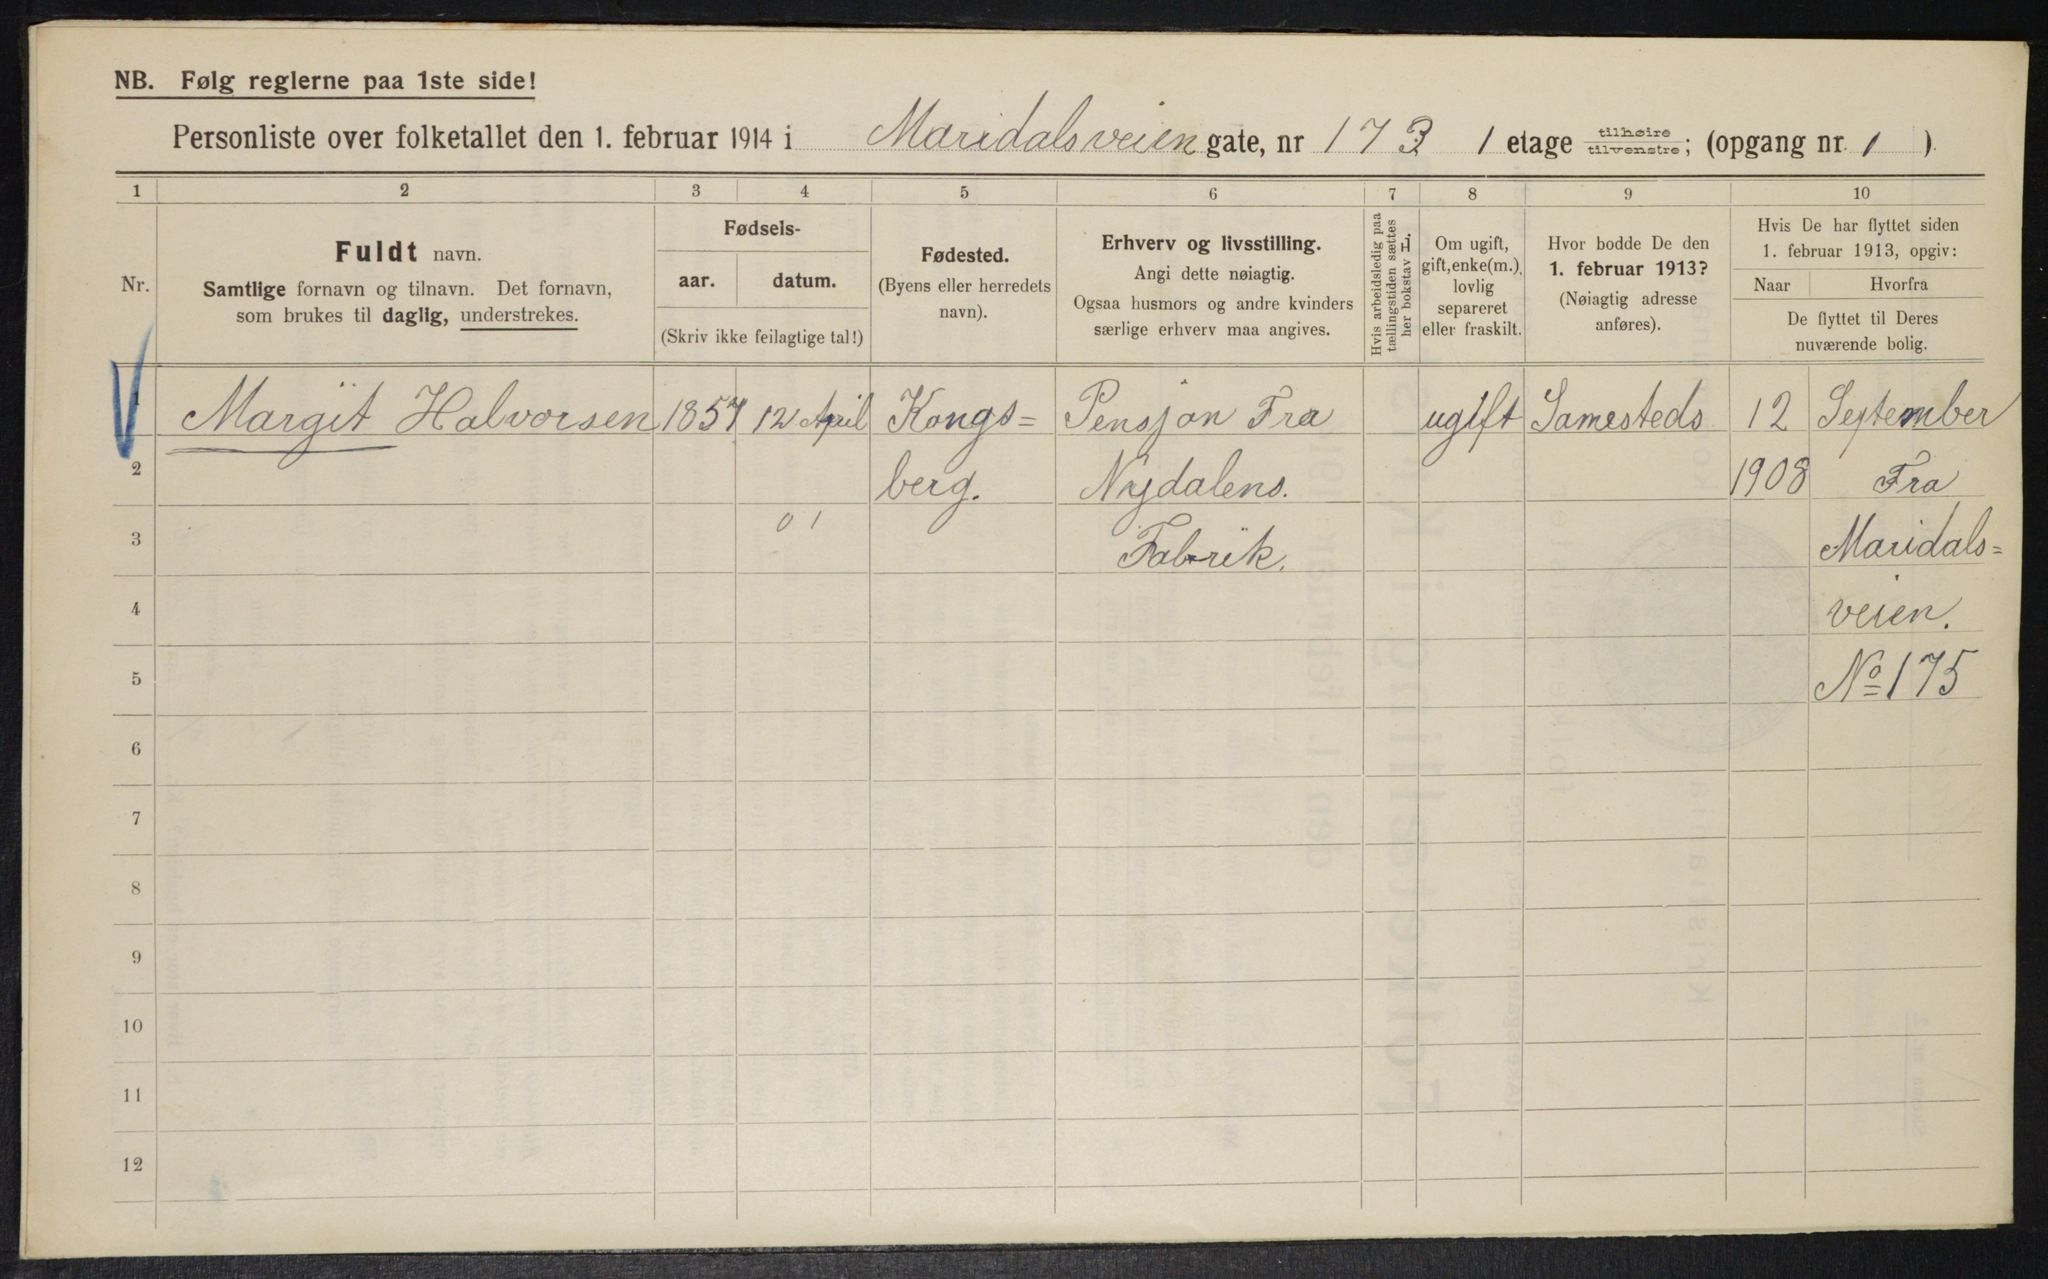 NB. Følg reglerne paa 1ste side!
Personliste over folketallet den 1. februar 1914 i Maridalsveien gate, nr 173 1 etage tilhøire tilvenstre; (opgang nr. 1 ).
1 2 3 4 5 6 7 8 9 10
Nr.
Fuldt navn.
Samtlige fornavn og tilnavn. Det fornavn,
som brukes til daglig, understrekes.
Fødsels-
aar. datum.
(Skriv ikke feilagtige tal!)
Fødested.
(Byens eller herredets
navn).
Erhverv og livsstilling.
Angi dette nøiagtig.
Ogsaa husmors og andre kvinders
særlige erhverv maa angives.
Hvis arbeidsledig paa
tællingstiden sættes
her bokstav L.
Om ugift,
gift, enke(m.),
lovlig
separeret
eller fraskilt.
Hvor bodde De den
1. februar 1913?
(Nøiagtig adresse
anføres).
Hvis De har flyttet siden
1. februar 1913, opgiv:
Naar Hvorfra
De flyttet til Deres
nuværende bolig.
1 Margit Halvorsen 1857 12 April Kongs= Pensjon Fra ugift Samesteds 12 September
2 berg. Nydalens. 1908 Fra
3 01 Fabrik. Maridals=
4 veien.
5 No 175
6
7
8
9
10
11
12